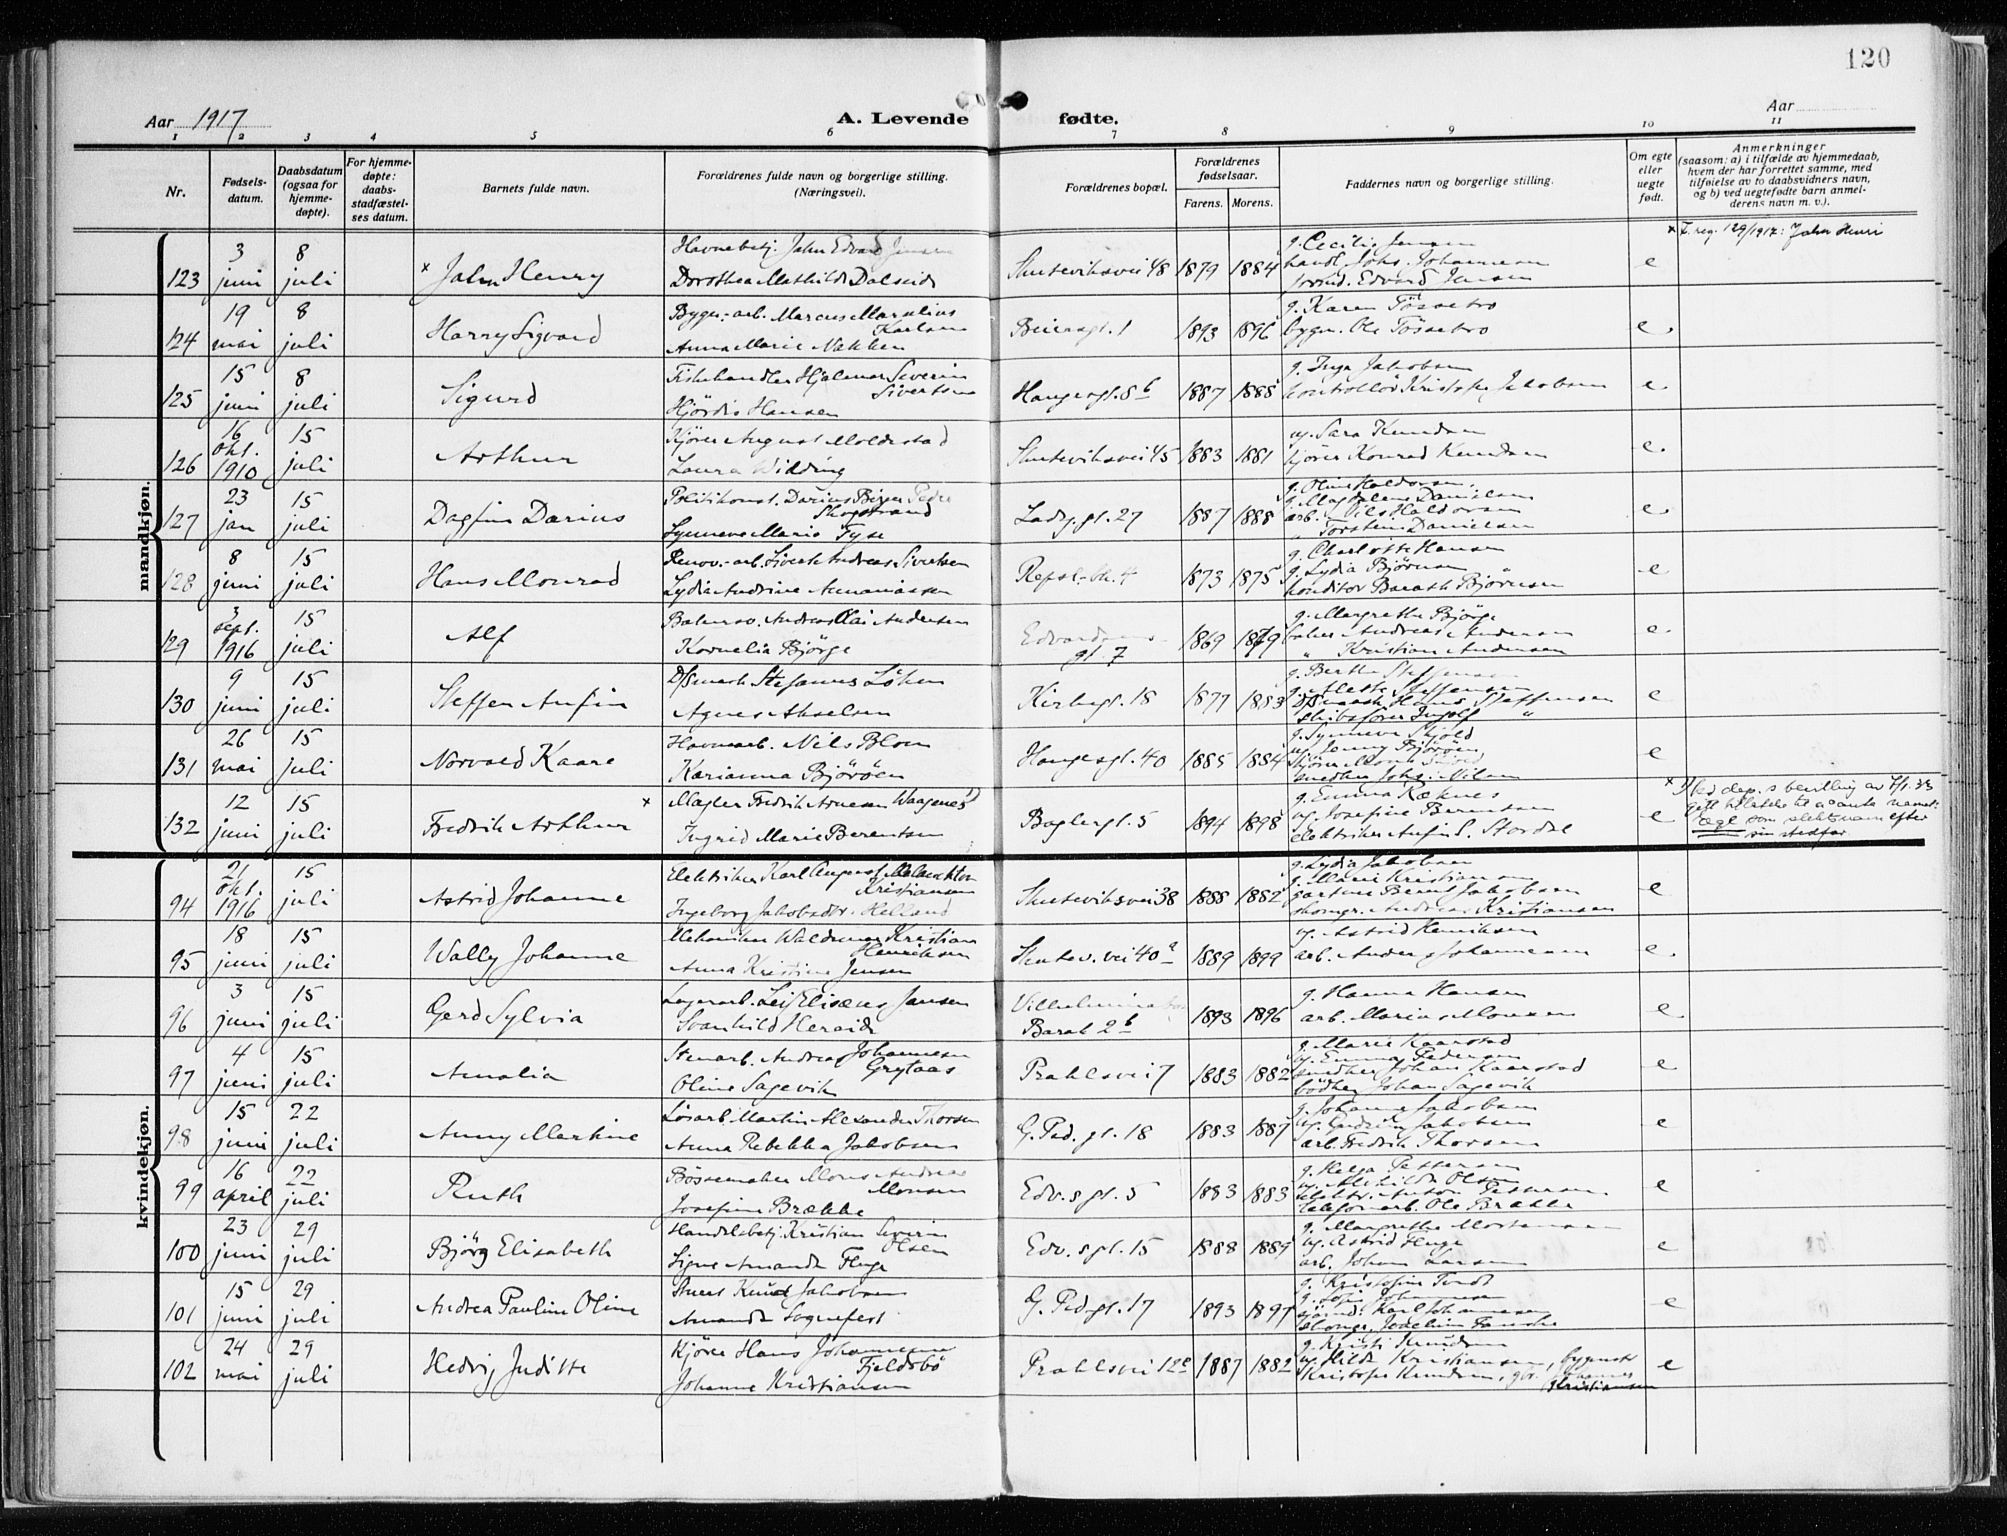 120
Aar 1917
A. Levende fødte.
Aar
1 2 3 4 5 6 7 8 9 10 11
Nr.
Fødsels-
datum.
Daabsdatum
(ogsaa for
hjemme-
døpte).
For hjemme-
døpte:
daabs-
stadfæstel-
ses datum.
Barnets fulde navn.
Forældrenes fulde navn og borgerlige stilling.
(Næringsvei).
Forældrenes bopæl.
Forældrenes
fødselsaar.
Farens. Morens.
Faddernes navn og borgerlige stilling.
Om egte
eller
uegte
født.
Anmerkninger
(saasom: a) i tilfælde av hjemmedaab,
hvem der har forrettet samme, med
tilføielse av to daabsvidners navn,
og b) ved uegtefødte barn anmel-
derens navn m. v.).
mandkjøn.
123 3 juni 8 juli × John Henry
Havnebetj. John Edvard Jensen
Dorothea Mathilde Dalseide
Skuteviksvei 48 1879 1884
g. Cecilie Jensen
handl. Johs. Johannesen
Edvard Jensen
e
× F. reg. 129/1917: John Henri
124 19 mai 8 juli Harry Sigvard
Bygn.-arb. Marcus Marelius
Karlsen
Anna Marie Nakken
Beiersgt. 1 1893 1896
g. Karen Tössebro
bygn. Ole Tössebro
e
125 15 juni 8 juli Sigurd
Fiskehandler Hjalmar Severin
Sivertsen
Hjördis Hansen
Haugesgt. 8b 1887 1888
g. Inga Jakobsen
kontrollör Jakobsen
e
126 16 okt. 1910 15 juli Arthur
Kjörer August Moldestad
Laura Widding
Skuteviksvei 45 1883 1881
ug. Sara Knudsen
kjörer Konrad Knudsen
e
127 23 jan 15 juli Dagfin Darius
Politikonst. Darius Birger
Skogstrand
Synneve Marie Tyse
Ladeg. gt. 27 1887 1888
g. Oline Haldorsen
g. Magdalene Danielsen
arb. Nils Haldorsen
" Torstein Danielsen
e
128 8 juni 15 juli Hans Monrad
Renov.-arb. Sivert Andreas Sivertsen
Lydia Andrine Ananiassen
Repsl.-bk. 4 1873 1875
g. Charlotte Hansen
g. Lydia Björnsen
konditor Björnsen
e
129 3 sept. 1916 15 juli Alf
Andreas Andersen
Kornelia Björge
Edvardsens-
gt. 7 1869 1879
g. Margrethe Björge
baker Andreas Andersen
" Kristian Andersen
e
130 9 juni 15 juli Steffen Anfin
D/Smask. Stefanus Löken
Agnes Akselsen
Kirkegt. 18 1877 1883
g. Berthe Steffensen
g. Alette Steffensen
D/Smask. Hans Steffensen
skibsförer Ingolf "
e
131 26 mai 15 juli Norvald Kaare
Havnearb. Nils Blom
Karianna Björöen
Haugesgt. 40 1885 1884
g. Synneve Skjold
ug. Jenny Björöen
kjörer Skjold
snedker Johs. Nilsen
e
132 12 juni 15 juli Fredrik Arthur
× Mægler Fredrik Arnesen Waagenes
Ingrid Marie Berentsen
Baglergt. 5 1894 1898
g. Emma Ræknes
ug. Josefine Berentsen
elektriker Anfin S. Stordal
e
× Med dep.s bevilling av
gitt tilladelse til å anta navnet:
Ege som slektsnavn efter
sin stedfar.
kvindekjøn.
94 21 okt. 1916 15 juli Astrid Johanne
Elektriker Karl August Melankton
Kristiansen
Ingeborg Jakobsdtr. Helland
Skuteviksvei 38 1888 1882
g. Lydia Jakobsen
g. Marie Kristiansen
gartner Bernt Jakobsen
skomgr. Andreas Kristiansen
e
95 18 juni 15 juli Wally Johanne
Mekaniker Waldemar Kristian
Henriksen
Anna Kristine Jensen
Skutev.vei 40a 1889 1899
ug. Astrid Henriksen
arb. Anders Johannesen
e
96 3 juni 15 juli Gerd Sylvia
Lagerarb. Leif Elisæus Jansen
Svanhild Heraide
Vilhelmine
Barak 2b 1893 1896
g. Hanna Hansen
arb. Marius Monsen
e
97 4 juni 15 juli Amalia
Stenarb. Andreas Johannesen
Grytaas
Oline Sagevik
Prahlsvei 7 1883 1882
g. Marie Kaarstad
ug. Emma Pedersen
snedker Johan Kaarstad
bödker Johan Sagevik
e
98 15 juni 22 juli Anny Martine
Lösarb. Martin Alexander Thorsen
Anna Rebekka Jakobsen
G. Ped. gt. 18 1883 1887
g. Johanne Jakobsen
ug. Gudrun Jakobsen
arb. Fredrik Thorsen
e
99 16 april 22 juli Ruth
Bössemaker Mons Andreas
Monsen
Josefine Brække
Edv.s gt. 5 1883 1883
g. Helga Pettersen
ug. Mathilde Olsen
elektr. Anton Pettersen
telefonarb. Ole Brække
e
100 23 juni 29 juli Björg Elisabeth
Handelsbetj. Kristian Severin
Olsen
Signe Amanda Fluge
Edv.s gt. 15 1888 1889
g. Margrethe Mortensen
ug. Astrid Fluge
arb. Johan Larsen
e
101 15 juni 29 juli Andrea Pauline Oline
Stuert Knud Jakobsen
Amanda Sognefest
G. Ped. gt. 17 1893 1897
g. Kristofine Tvedt
g. Sofie Johannesen
sjömd. Karl Johannesen
skomgr. Joachim Fanske
e
102 24 mai 29 juli Hedvig Juditte
Kjörer Hans Johannesen
Fjeldsbö
Johanne Kristiansen
Prahlsvei 12c 1887 1882
g. Kristi Knudsen
ug. Hilda Kristiansen, bygmstr
Kristofer Knudsen, gbr. Johannes
Kristiansen
e